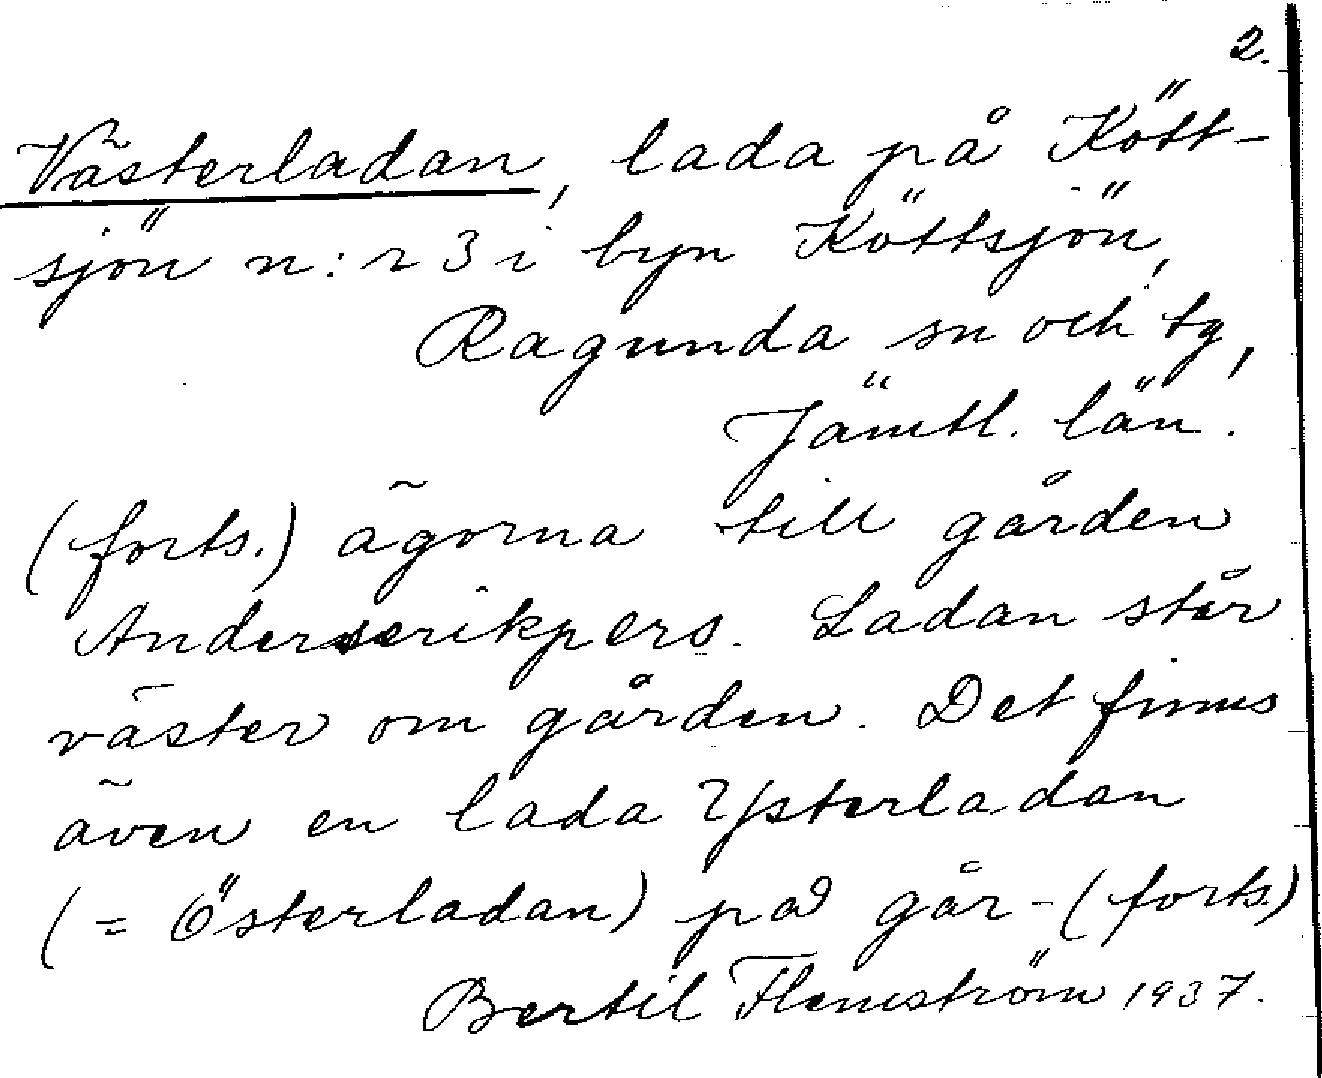 2.
Västerladan, lada på Kött-
sjön n:r 3 i byn Köttsjön,
Ragunda sn och tg,
Jämtl. län.
(forts.) ägorna till gården
Anderserikpers. Ladan står
väster om gården. Det finns
även en lada Ysterladan
(= Österladan) på går- (forts.)
Bertil Flemström 1937.